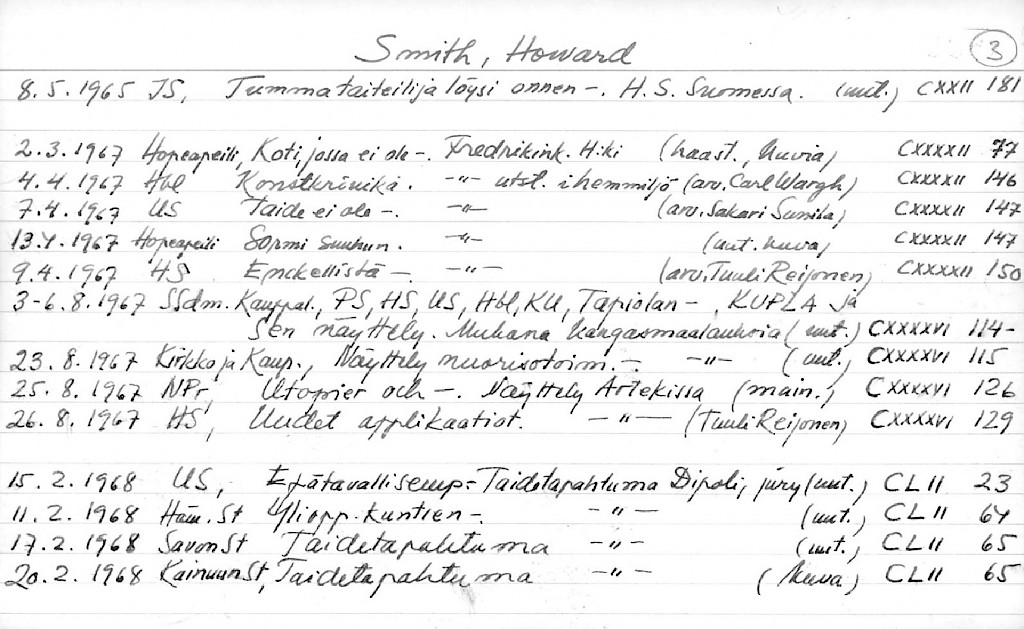 Smith, Howard 3
8.5.1965 IS, Tumma taiteilija löysi onnen -. H.S. Suomessa. (uut.) CXXII 181
2.3.1967 Hopeapeili, Koti, jossa ei ole -. Fredrikink. H:ki (haast., kuvia) CXXXXII 77
4.4.1967 Hbl Konstkrönika. -"- utst. i hemmiljö (arv. Carl Wargh) CXXXXII 146
7.4.1967 US Taide ei ole -. -"- (arv. Sakari Sunila) CXXXXII 147
13.4.1967 Hopeapeili Sormi suuhun. -"- (uut. kuva) CXXXXII 147
9.4.1967 HS Enckellistä - -"- (arv. Tuuli Reijonen) CXXXXII 150
3-6.8.1967 SSdm. Kauppal., PS, HS, US, Hbl, KU, Tapiolan -, KUPLA ja
sen näyttely. Mukana kangasmaalauksia (uut.) CXXXXVI 114-
23.8.1967 Kirkko ja Kaup., Näyttely nuorisotoim. -. -"- (uut.) CXXXXVI 115
25.8.1967 NPr, Utopier och -. Näyttely Artekissa (main.) CXXXXVI 126
26.8.1967 HS, Uudet applikaatiot. -"- (Tuuli Reijonen) CXXXXVI 129
15.2.1968 US, Epätavallisemp- Taidetapahtuma Dipoli, jury (uut.) CLII 23
11.2.1968 Häm.St Yliopp.kuntien -. -"- (uut.) CLII 64
17.2.1968 SavonSt Taidetapahtuma -"- (uut.) CLII 65
20.2.1968 KainuunSt, Taidetapahtuma -"- (kuva) CLII 65